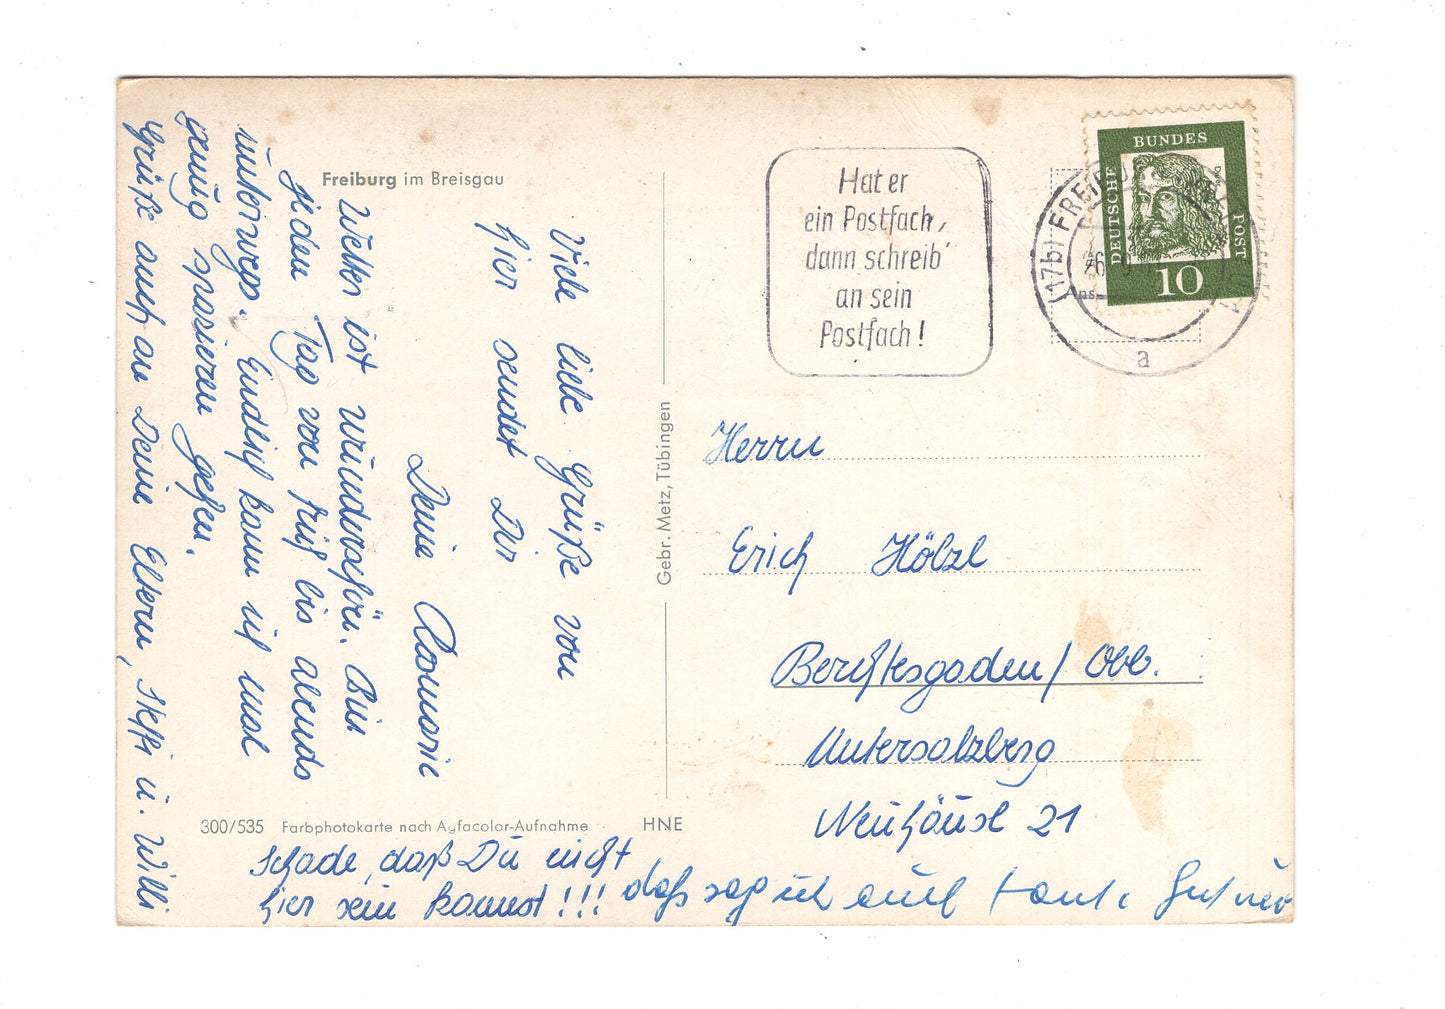 Freiburg im Breisgau
Viele liebe Grüße von
hier sendet Dir
Deine Rosmarie
Wetter ist wunderschön. Bin
jeden Tag von früh bis abends
unterwegs. Endlich kann ich mal
genug spazieren gehen.
Grüße auch an Deine Eltern, Steffi u. Willi
300/535 Farbphotokarte nach Agfacolor-Aufnahme HNE
Schade, daß Du nicht
hier sein kannst!!! daß sag ich auch Tante
Gebr. Metz, Tübingen
Hat er
ein Postfach,
dann schreib'
an sein
Postfach!
(17b) FREIBU
a
DEUTSCHE
BUNDES
POST
10
Herrn
Erich Hölzl
Berchtesgaden/Obb.
Untersalzberg
Neuhäusl 21